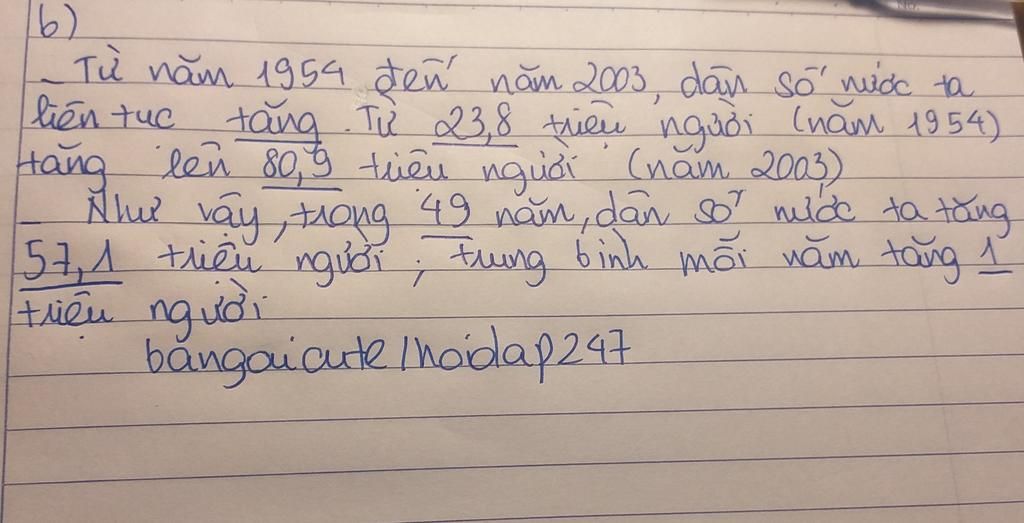 b)
- Từ năm 1954 đến năm 2003, dân số nước ta
liên tục tăng. Từ 23,8 triệu người (năm 1954)
tăng lên 80,9 triệu người (năm 2003)
- Như vậy, trong 49 năm, dân số nước ta tăng
57,1 triệu người; trung bình mỗi năm tăng 1
triệu người
bangaicute/hoidap247